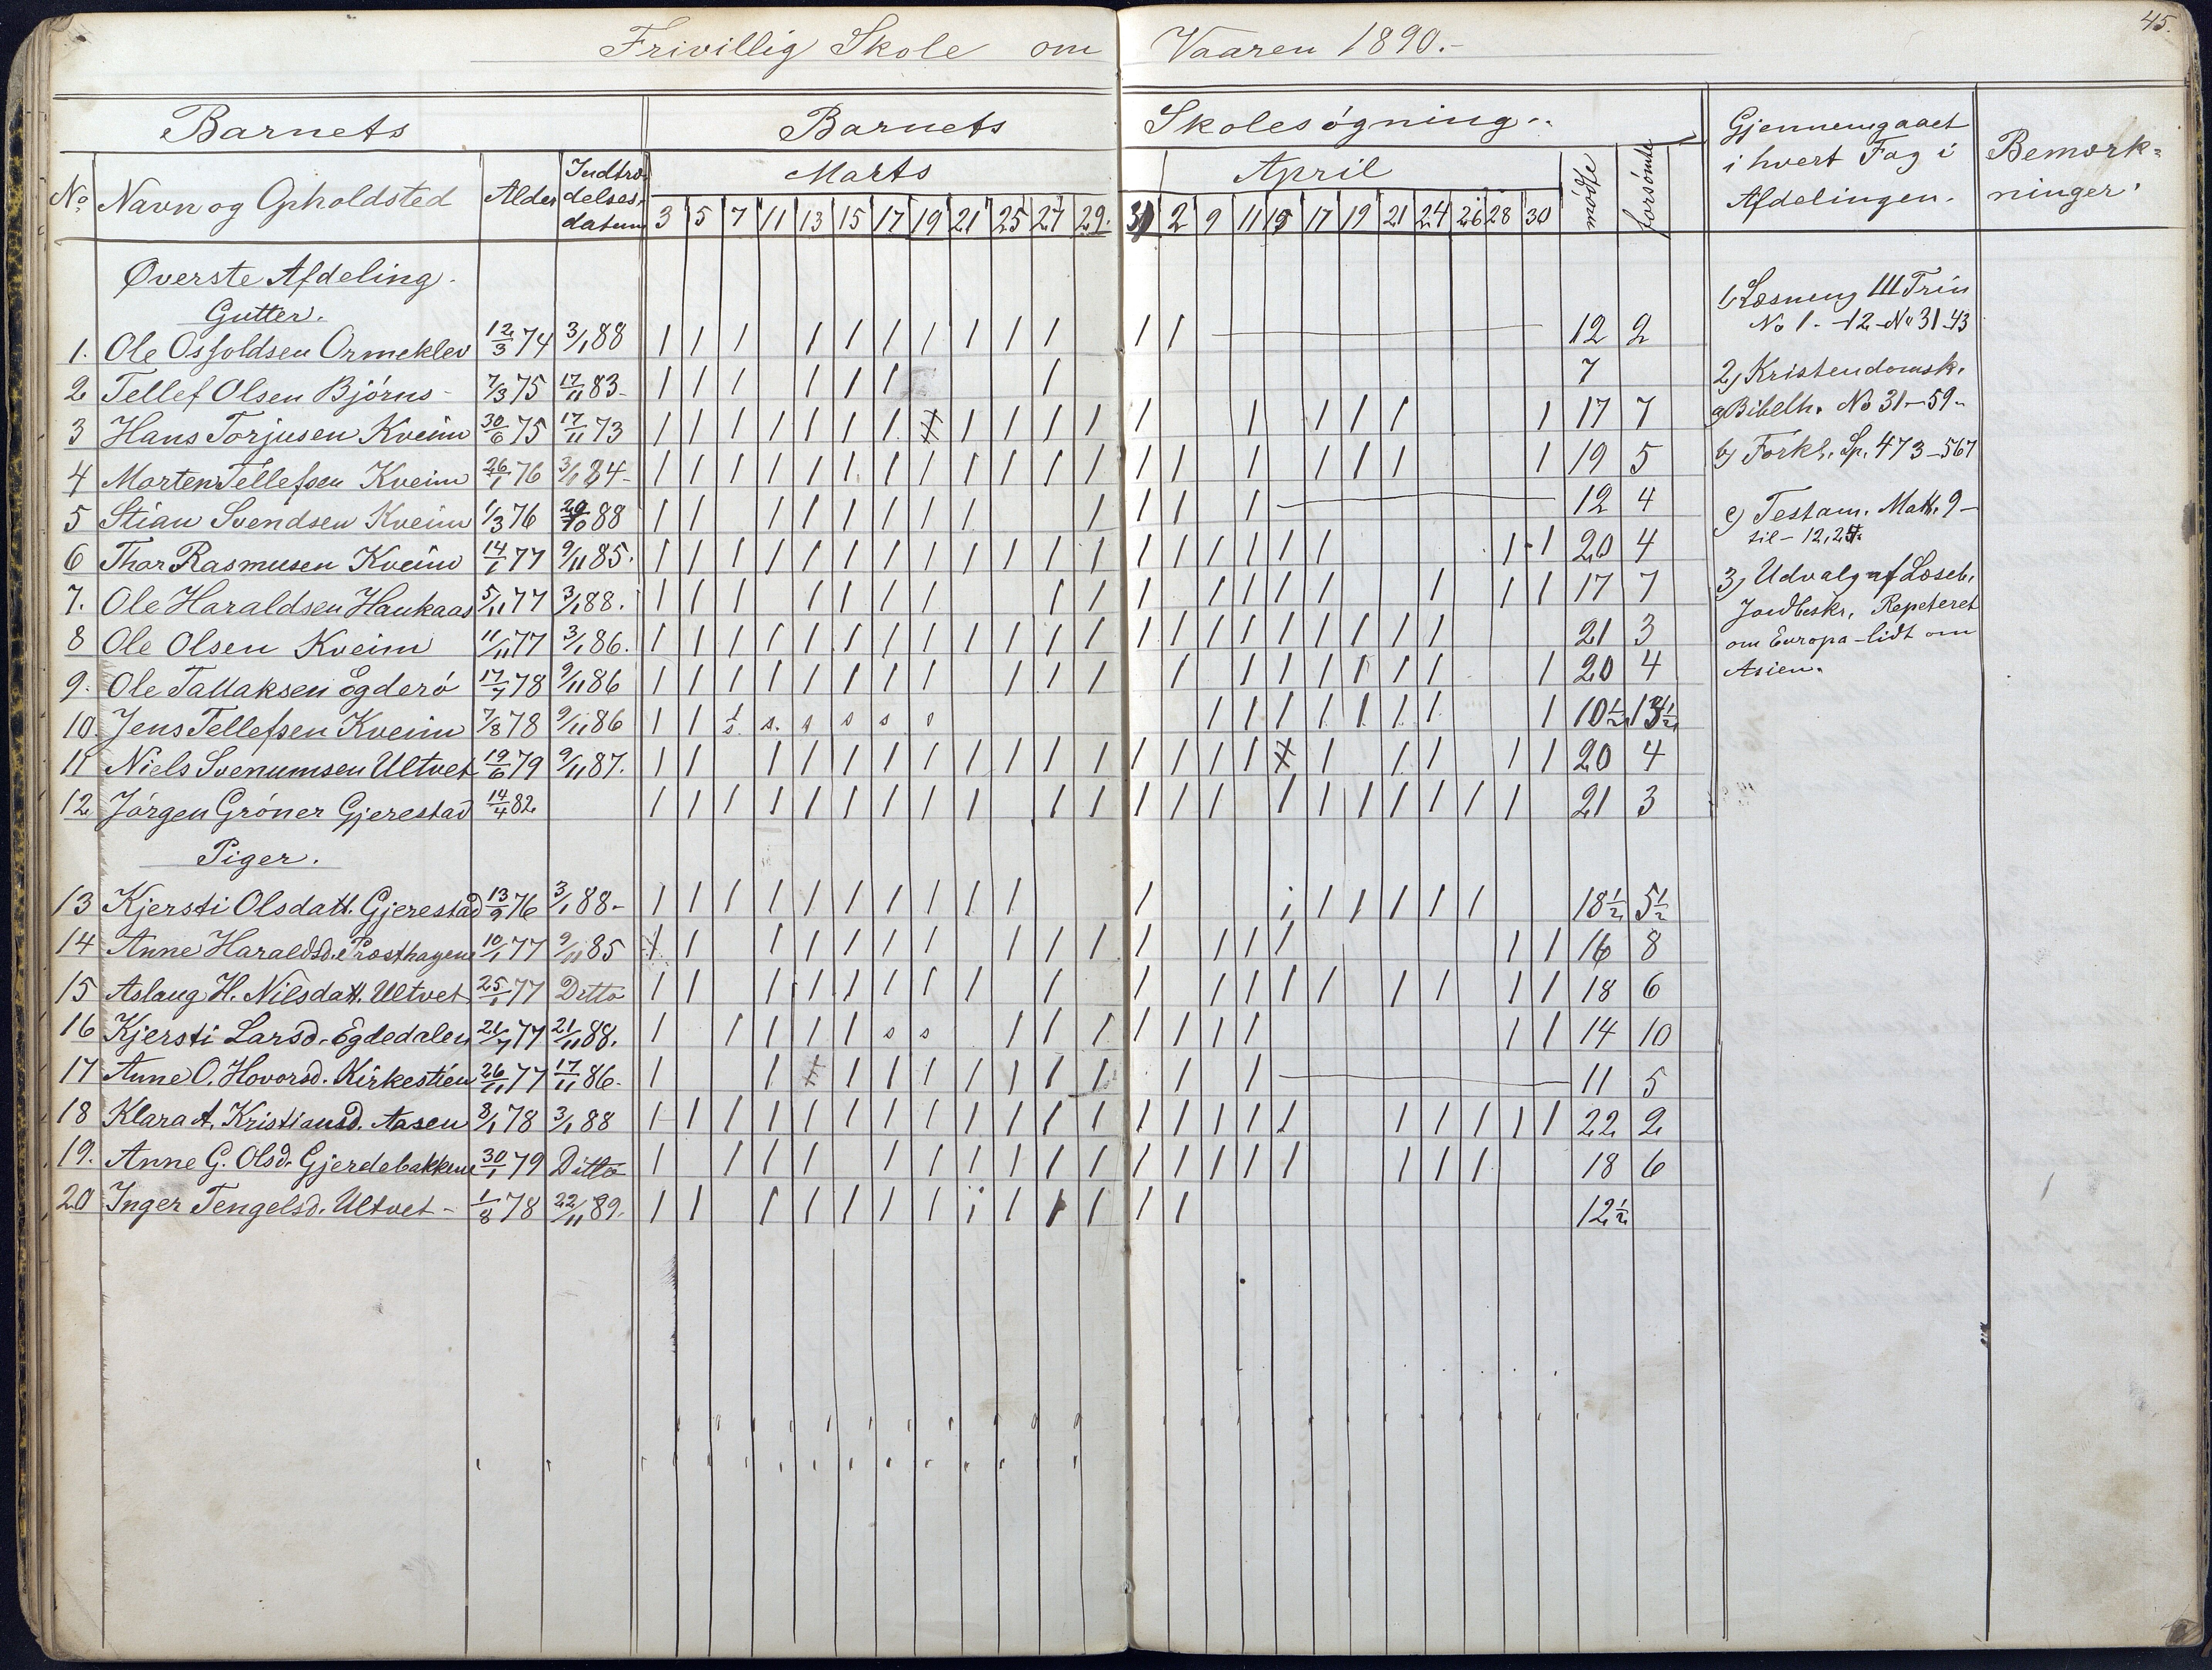 45.
Frivillig Skole om Vaaren 1890.-
Barnets Barnets Skolesøgning.. Gjennemgaaet i hvert Fag i Afdelingen. Bemærkninger.
No Navn og Opholdsted Alder Indtrædelsesdatum Marts April mødte forsømte
3 5 7 11 13 15 17 19 21 25 27 29. 31 2 9 11 15 17 19 21 24 26 28 30
Øverste Afdeling.
Gutter.
1. Ole Osfoldsen Ormeklev 12/3 74 3/1 88 | | | | | | | | | | | | 12 2
2 Tellef Olsen Bjørns- 7/3 75 17/11 83- | | | | | | | 7
3 Hans Torjusen Kveim 30/6 75 17/11 73 | | | | | | | X | | | | | | | | | | 17 7
4 Morten Tellefsen Kveim 26/1 76 3/1 84- | | | | | | | | | | | | | | | | | | | 19 5
5 Stian Svendsen Kveim 1/3 76 29/10 88 | | | | | | | | | | | | 12 4
6 Thor Rasmusen Kveim 14/1 77 9/11 85. | | | | | | | | | | | | | | | | | | | | 20 4
7. Ole Haraldsen Haukaas 5/11 77 3/1 88. | | | | | | | | | | | | | | | | | 17 7
8 Ole Olsen Kveim 11/11 77 3/1 86. | | | | | | | | | | | | | | | | | | | | | 21 3
9. Ole Tallaksen Egderø 17/7 78 9/11 86 | | | | | | | | | | | | | | | | | | | 20 4
10. Jens Tellefsen Kveim 7/8 78 9/11 86 | | 1/s s. s s s | | | | | | | | 10½ 13½
11 Niels Svenumsen Ultvet 19/6 79 9/11 87. | | | | | | | | | | | | | | | X | | | | | 20 4
12 Jørgen Grøner Gjerestad 14/4 82 | | | | | | | | | | | | | | | | | | | | | 21 3
Piger.
13 Kjersti Olsdatt. Gjerestad 13/9 76 3/1 88- | | | | | | | | | | | i | | | | | 18½ 5½
14 Anne Haraldsd. Præsthagen 10/1 77 9/11 85 X | | | | | | | | | | | | | | | 16 8
15 Aslaug H. Nilsdatt. Ultvet 25/1 77 Ditto | | | | | | | | | | | | | | | | | | 18 6
16 Kjersti Larsd. Egdedalen 21/7 77 21/11 88. | | | | | s s | | | | | | | | | 14 10
17 Anne O. Hovorsd. Kirkestien 26/11 77 17/11 86- | | X | | | | | | | | | 11 5
18 Klara A. Kristiansd. Aasen 8/1 78 3/1 88 | | | | | | | | | | | | | | | | | | | | | | 22 2
19. Anne G. Olsd. Gjerdebakken 30/1 79 Ditto | | | | | | | | | | | | | | | | | | 18 6
20 Inger Tengelsd. Ultvet - 1/8 78 22/11 89. | | | | | | | i | | | | | 12½
1, Læsning III Trin
No 1.-12-No 31-43
2, Kristendomsk.
a, Bibelh. No 31-59-
b, Forkl. Sp. 473-567
c, Testam. Matt. 9-
til- 12,24.
3, Udvalg af Læseb.
Jordbeskr. Repeteret
om Europa - lidt om
Asien.